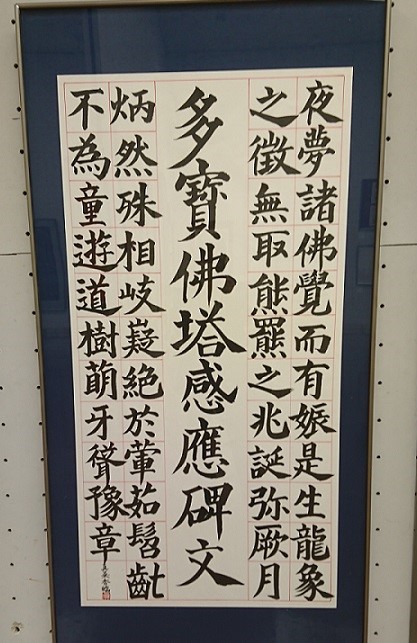 夜夢諸佛覺而有娠是生龍象
之徴無取熊羆之兆誕弥厥月
多寶佛塔感應碑文
炳然殊相岐嶷絶於葷茹髫齔
不為童遊道樹萌牙聳豫章